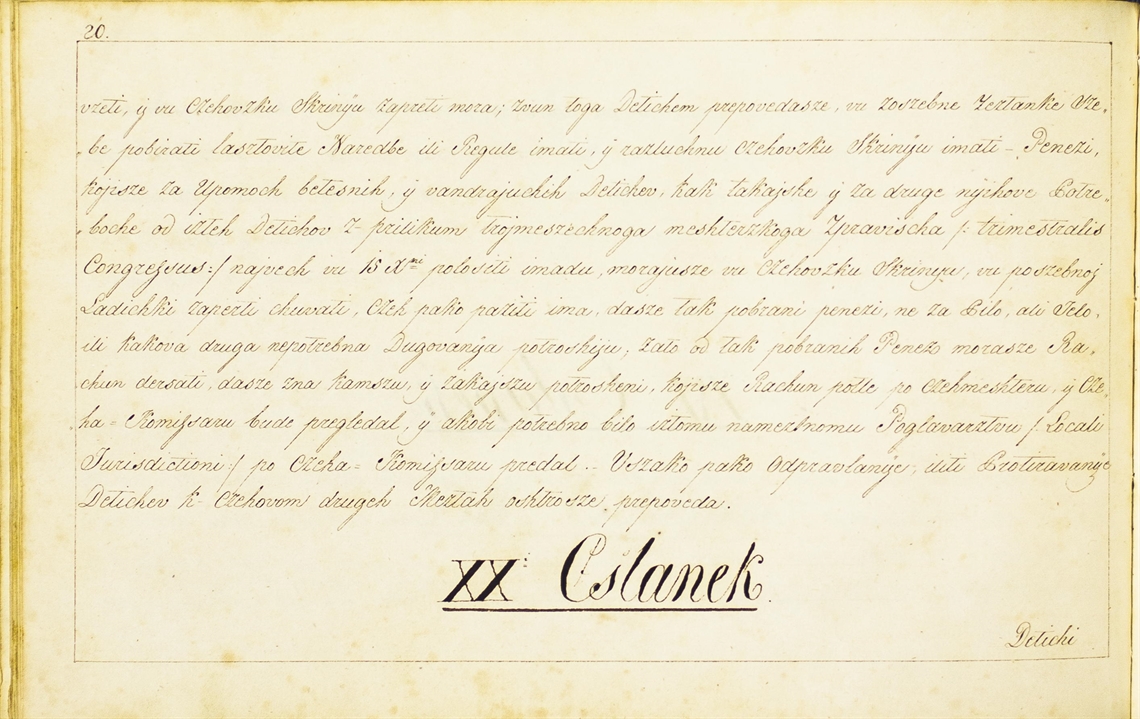 20.
vzeti, y vu Czehovzku Skrinyu zapreti mora; zvun toga Detichem prepovedasze, vu zoszebne Jertanke Sze„
„be pobirati lasztovite Naredbe ili Regule imati, y razluchnu Czehovzku Skrinyu imati – Penezi,
kojisze za Upomoch betesnih, y vandrajuchih Detichev, kak takajske y za druge nyihove Potre„
„boche od izteh Detichov z- prilikum trojmeszechnoga meshterzkoga Zpravischa /: trimestralis
Congressus:/ najvech vu 15 Xmi polositi imadu, morajusze vu Czehovzku Skrinyu, vu poszebnoj
Ladichki zaperti chuvati, Czeh pako paziti ima, dasze tak pobrani penezi, ne za Pilo, ali Jelo,
ili kakova druga nepotrebna Dugovanja potroshiju; zato od tak pobranih Penez morasze Ra„
chun dersati, dasze zna kamszu, y zakajszu potrosheni, kojisze Rachun potle po Czehmeshteru, y Cze„
ha = Komissaru bude pregledal, y akobi potrebno bilo iztomu nameztnomu Poglavarztvu /: Locali
Jurisdictioni:/ po Czeha = Komissaru predal .– Uszako pako Odpravlanye, iliti Protiravanye
Detichev k- Czehovom drugeh Meztah oshtrosze prepoveda.
XX: Cslanek.
Detichi